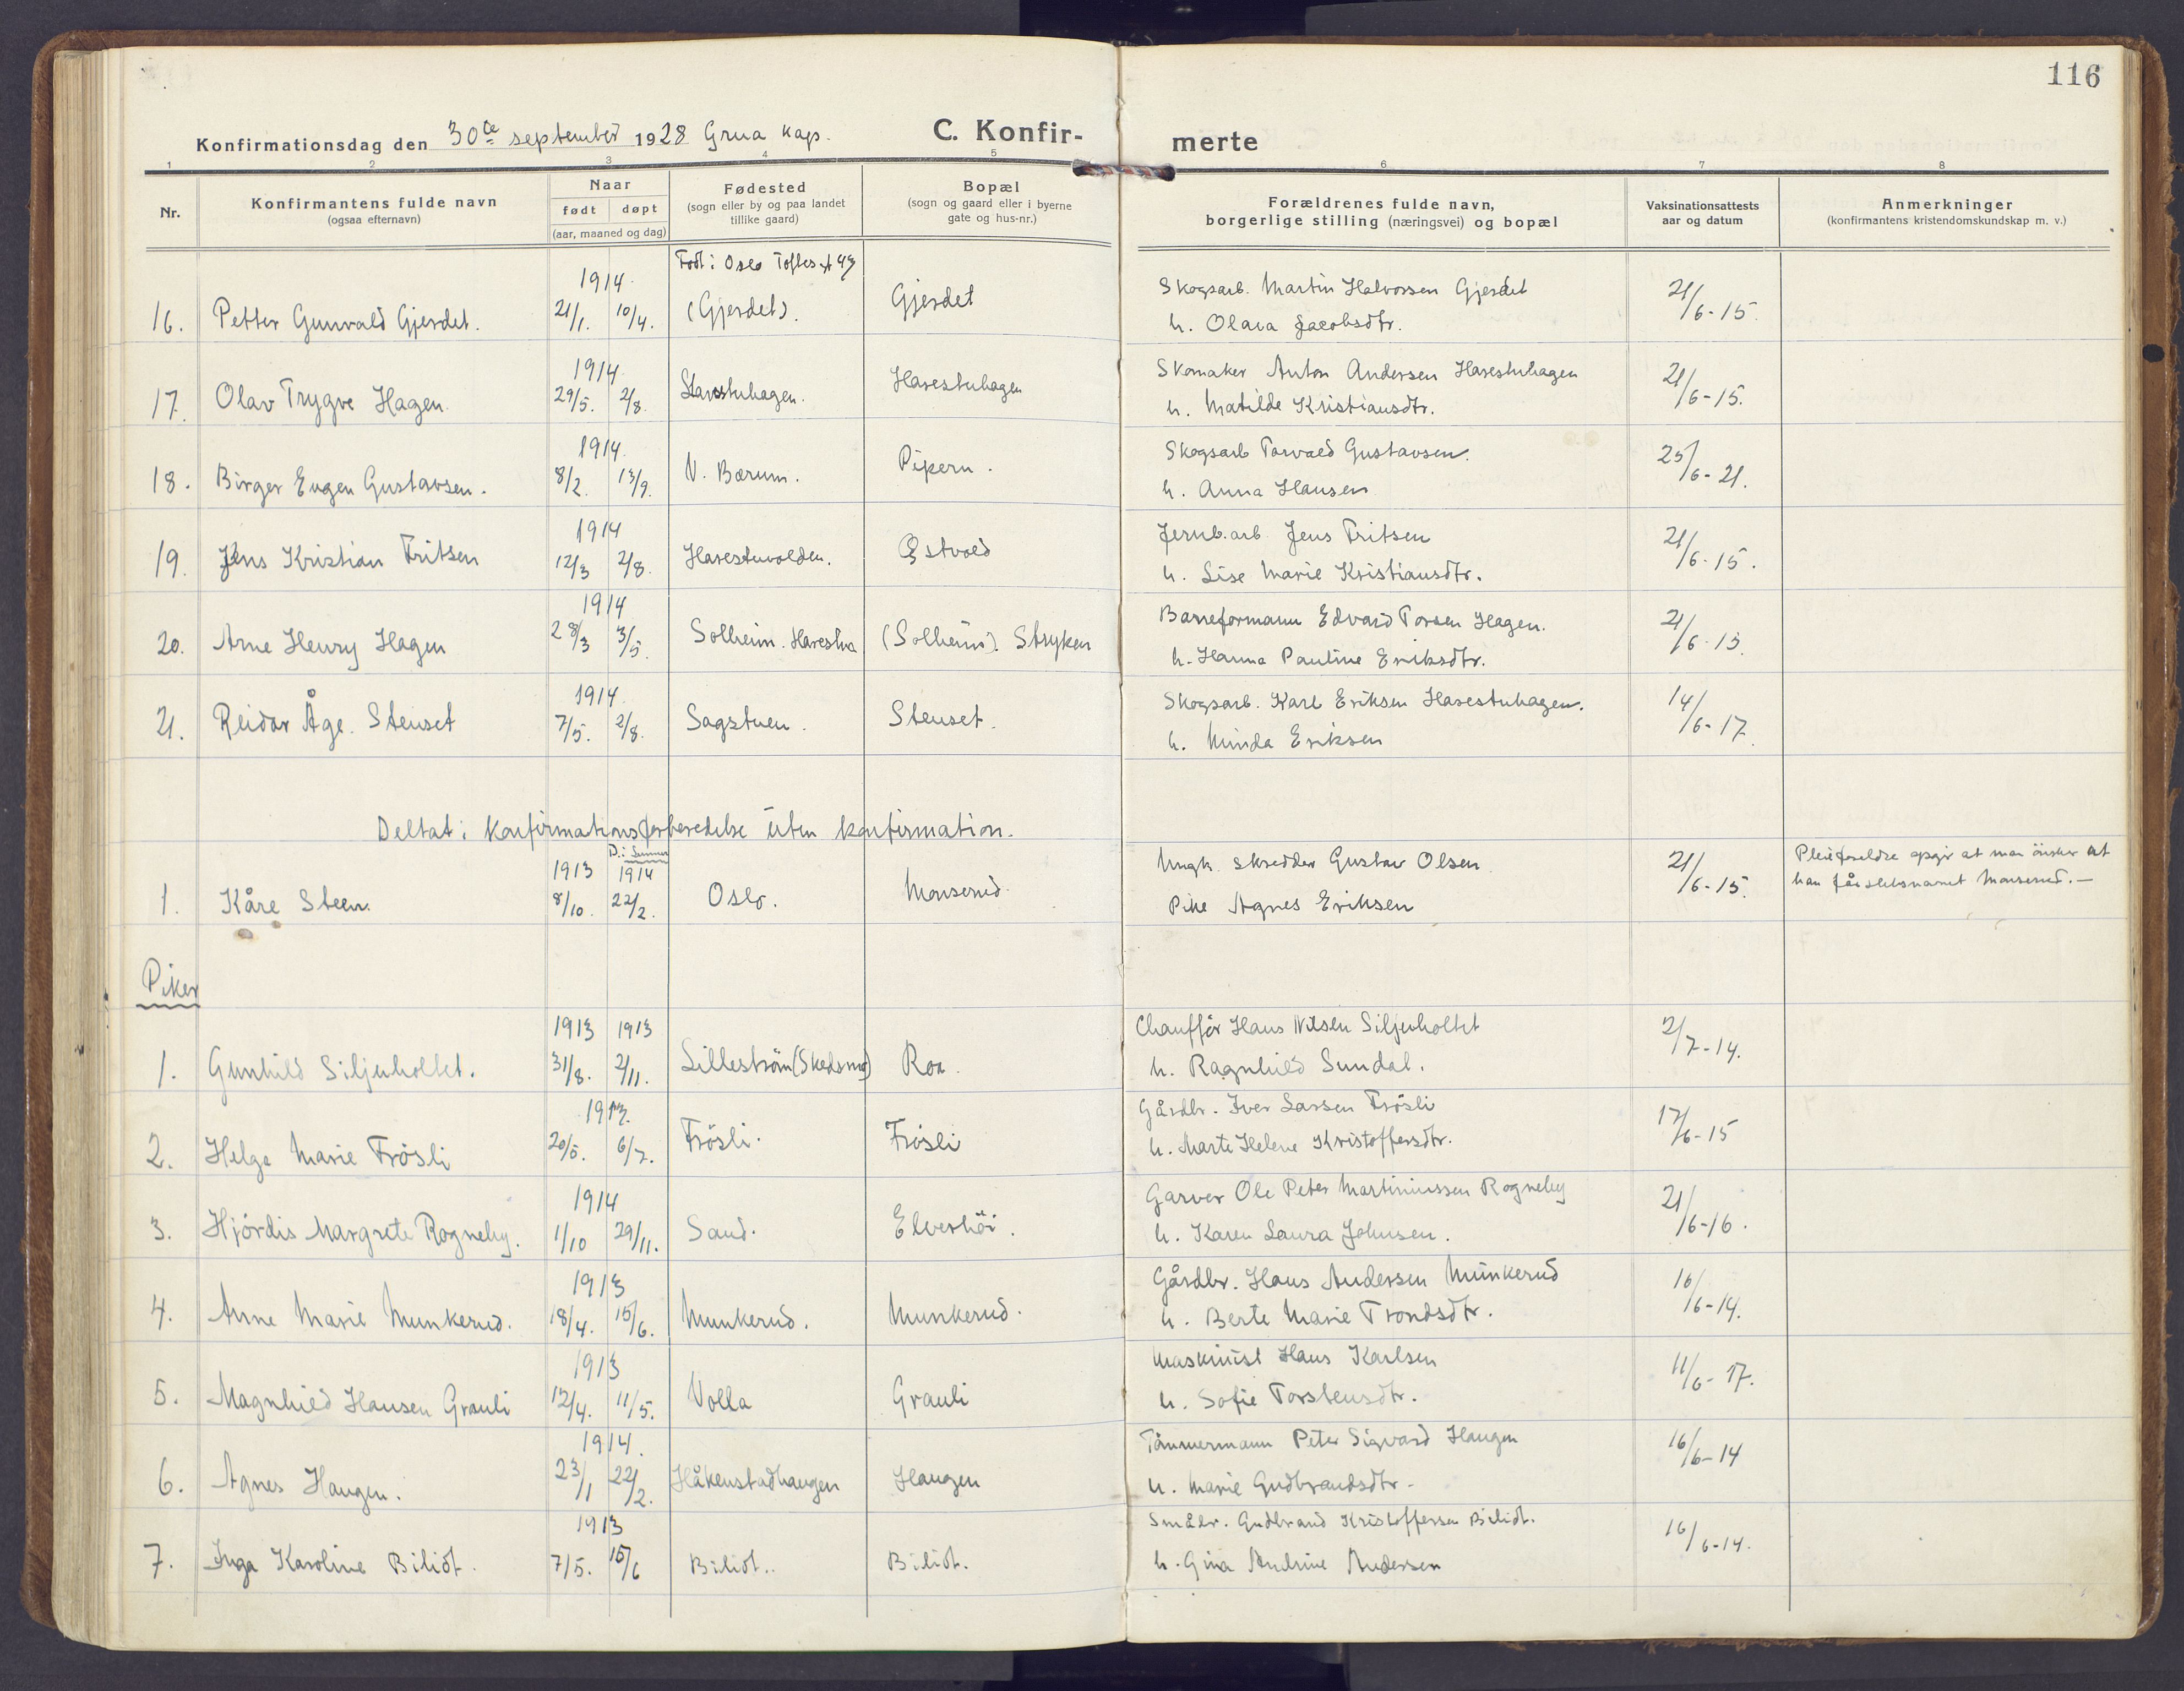 116
Konfirmationsdag den 30te september 1928 Grua kap.
C. Konfir-
merte
1 2 3 4 5 6 7 8
Nr.
Konfirmantens fulde navn
(ogsaa efternavn)
Naar
født døpt
(aar, maaned og dag)
Fødested
(sogn eller by og paa landet
tillike gaard)
Bopæl
(sogn og gaard eller i byerne
gate og hus-nr.)
Forældrenes fulde navn,
borgerlige stilling (næringsvei) og bopæl
Vaksinationsattests
aar og datum
Anmerkninger
(konfirmantens kristendomskundskap m. v.)
1914 Født i Oslo Toftes
16. Petter Gunvald Gjerdet. 21/1. 10/4. (Gjerdet). Gjerdet Skogsarb. Martin Halvorsen Gjerdet 21/6-15.
h. Olava Jacobsdtr.
1914
17. Olav Trygve Hagen 29/5. 2/8. Harestuhagen. Harestuhagen Skomaker Anton Andersen Harestuhagen 21/6-15.
h. Matilde Kristiansdtr.
1914
18. Birger Eugen Gustavsen. 8/2. 13/9. V. Bærum. Pipern. Skogsarb Torvald Gustavsen. 25/6-21.
h. Anna Hansen
1914
19. Jens Kristian Fritsen 12/3 2/8. Harestuvolden. Østvold Jernb.arb. Jens Fritsen 21/6-15.
h. Lise Marie Kristiansdtr.
1914
20. Arne Henry Hagen 28/3 3/5. Solheim. Harestua (Solheim). Stryken Baneformann Edvard Torsen Hagen. 21/6-15.
h. Hanna Pauline Eriksdtr.
1914
21. Reidar Åge Stenset 7/5. 2/8. Sagstuen. Stenset. Skogsarb. Karl Eriksen Harestuhagen. 14/6-17.
h. Minda Eriksen
Deltat i konfirmationsforberedelse uten konfirmation.
1913 1914
1. Kåre Steen. 8/10. 22/2. Oslo. Monserud. Ungk. skredder Gustav Olsen 21/6-15. Pleieforeldre opgir at man ønsker at
Pike Agnes Eriksen han får slektsnavnet Monserud.—
Piker
1913 1913
1. Gunhild Siljuholtet. 31/8. 2/11. Lillestrøm (Skedsmo) Roa. Chauffør Hans Nilsen Siljuholtet 2/7-14.
h. Ragnhild Sundal.
1913.
2. Helga Marie Frøsli 20/5. 6/7. Frøsli. Frøsli Gårdbr. Iver Larsen Frøsli 17/6-15
h. Marte Helene Kristoffersdtr.
1914
3. Hjørdis Margrete Rogneby. 1/10 29/11. Sand. Elverhøi. Garver Ole Peter Martiniussen Rogneby 21/6-16.
h. Karen Laura Johnsen.
1913
4. Anne Marie Munkerud. 18/4. 15/6. Munkerud. Munkerud. Gårdbr. Hans Andersen Munkerud 16/6-14.
h. Berte Marie Trondsdtr.
1913
5. Magnhild Hansen Grauli 12/4. 11/5. Volla Grauli Maskinist Hans Karlsen 11/6-17.
h. Sofie Torstensdtr.
1914.
6. Agnes Haugen. 23/1 22/2. Håkenstadhaugen Haugen Tømmermann Peter Sigvard Haugen 16/6-14
h. Marie Gudbrandsdtr.
1913
7. Inga Karoline Bilidt. 7/5. 15/6 Bilidt. Bilidt. Småbr. Gudbrand Kristoffersen Bilidt. 16/6-14.
h. Gina Andrine Andersen